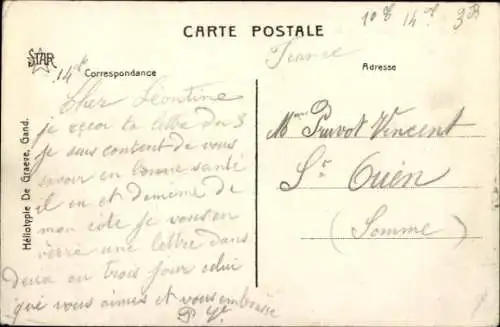 CARTE POSTALE
10c 14c 3B
STAR
14c
Correspondance
France
Adresse
Héliotypie De Graeve, Gand.
Cher Léontine
je reçoi ta lettre du 3
je suis content de vous
savoir en bonne santé
il en et de même de
mon côté je vous en
verré une lettre dans
deux ou trois jour celui
qui vous aimes et vous embrasse
Mme Pruvot Vincent
St Ouen
(Somme)